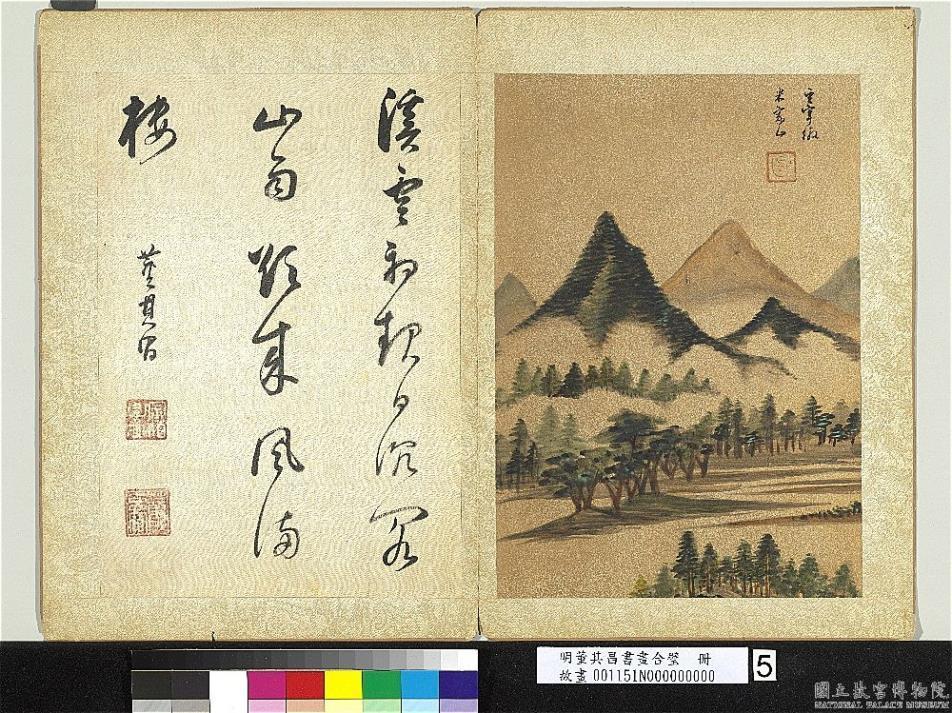 玄宰倣
米家山
溪雲初起日沉閣
山雨欲來風滿
樓
董其昌
明董其昌書畫合璧 冊
故畫 001151N000000000
5
國立故宮博物院
NATIONAL PALACE MUSEUM